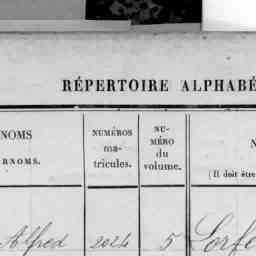 RÉPERTOIRE ALPHABÉ
NOMS
RNOMS.
NUMÉROS
ma-
tricules.
NU-
MÉRO
du
volume.
N
(Il doit être
Alfred 2024 5 Lorfe